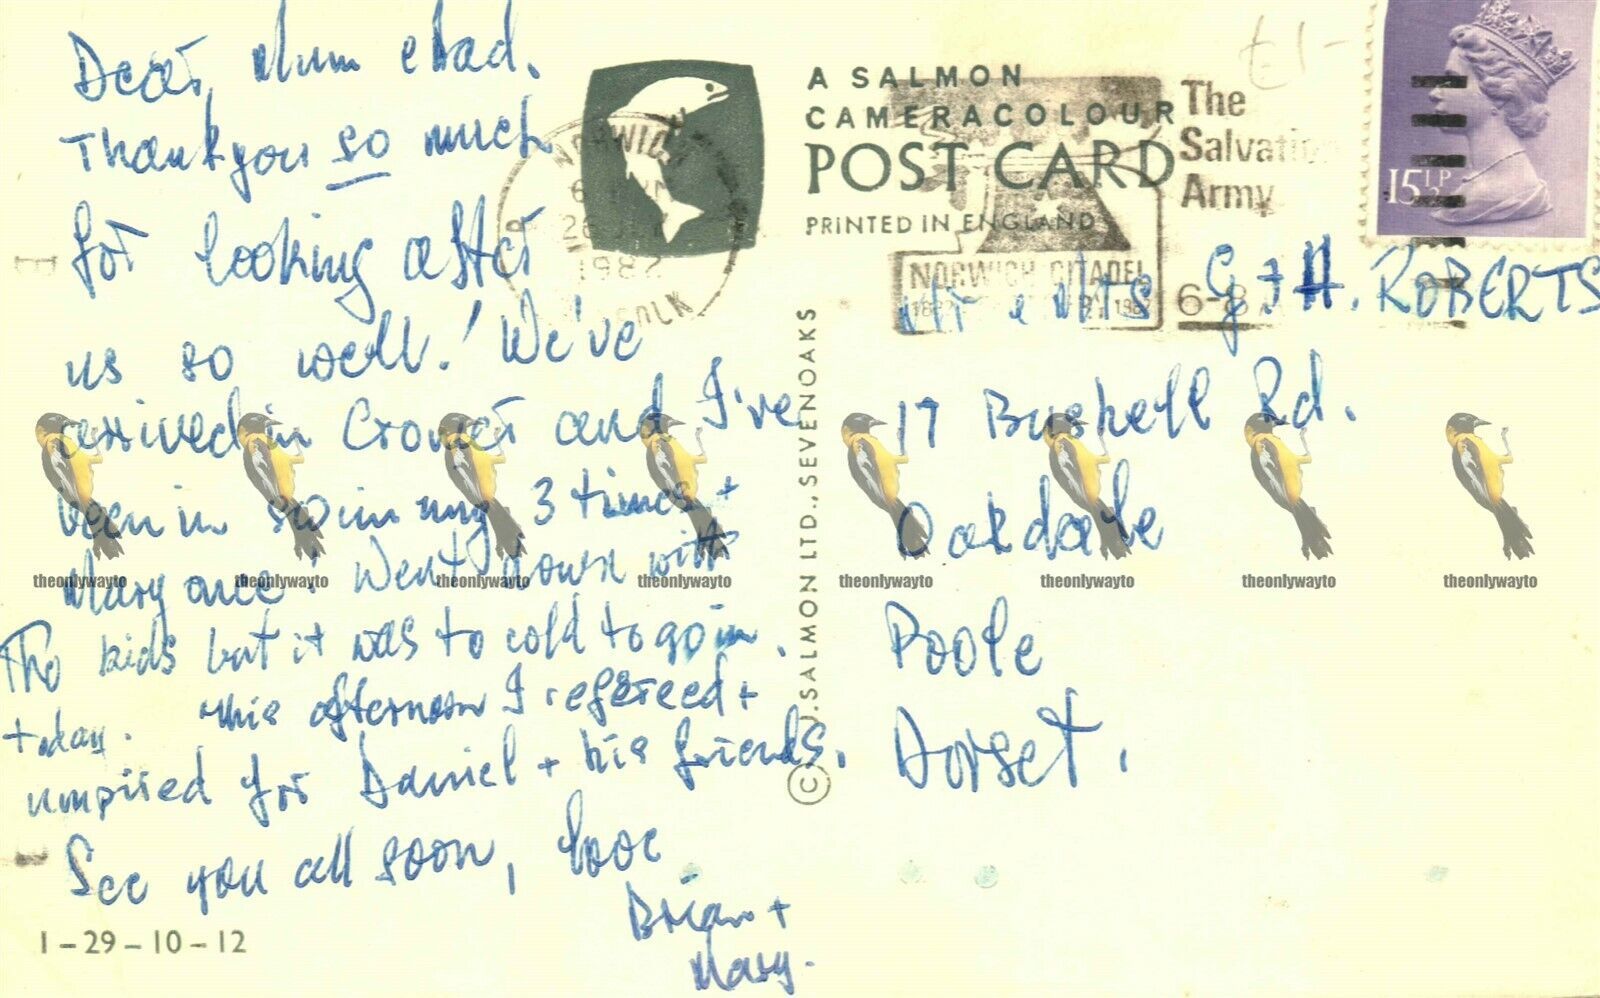 Dear Mum & Dad.
Thankyou so much
for looking after
us so well! We've
arrived in Cromer and I've
been in swimming 3 times +
Mary once! Went down with
The kids but it was to cold to go in
today. This afternoon I refereed +
umpired for Daniel + his friends.
See you all soon, love
Brian +
Mary.
1-29-10-12
A SALMON
CAMERACOLOUR
POST CARD
PRINTED IN ENGLAND
© J. SALMON LTD., SEVENOAKS
NORWICH
26
1982
NORFOLK
The
Salvation
Army
NORWICH CITADEL
1882 1982
6-8
£1-
15½P
Mr & Mrs G + H. ROBERTS
17 Bushell Rd.
Oakdale
Poole
Dorset.
theonlywayto theonlywayto theonlywayto theonlywayto theonlywayto theonlywayto theonlywayto theonlywayto